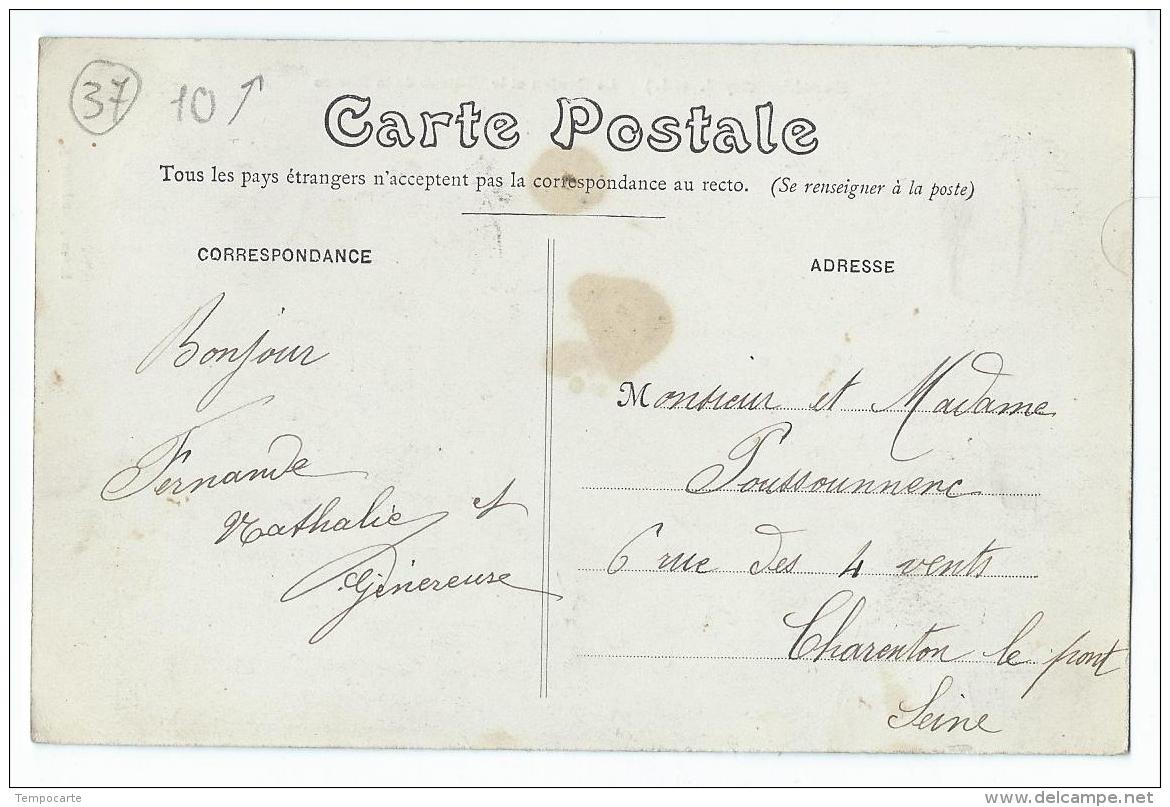 37 10
Carte Postale
Tous les pays étrangers n'acceptent pas la correspondance au recto. (Se renseigner à la poste)
CORRESPONDANCE
Bonjour
Fernande
Nathalie et
Génereuse
ADRESSE
Monsieur et Madame
Poussounnenc
6 rue des 4 vents
Charenton le pont
Seine
Tempocarte
delcampe.net